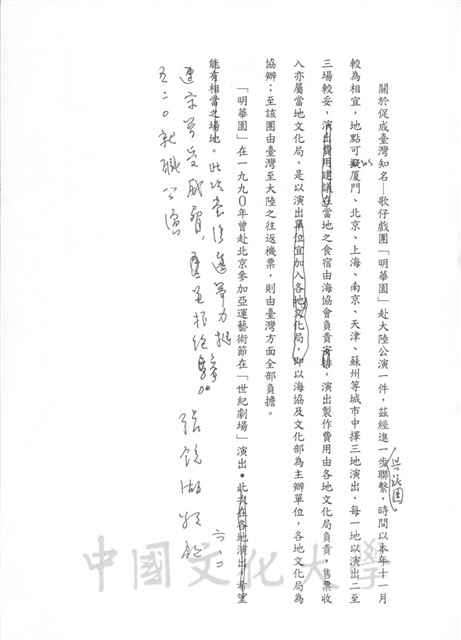 關於促成臺灣知名—歌仔戲團「明華園」赴大陸公演一件，茲經進一步聯繫，時間以本年十一月
與該團
較為相宜，地點可擬厦門、北京、上海、南京、天津、蘇州等城市中擇三地演出，每一地以演出二至
三場較妥，演出費用建議在當地之食宿由海協會負責安排，演出製作費用由各地文化局負責，售票收
入亦屬當地文化局，是以演出單位宜加入各地文化局，即以海協及文化部為主辦單位，各地文化局為
協辦；至該團由臺灣至大陸之往返機票，則由臺灣方面全部負擔。
「明華園」在一九九０年曾赴北京參加亞運藝術節在「世紀劇場」演出。此次在各地演出，希望
能有相當之場地。此次
五二０就職
張鏡湖
六、二
中國文化大學